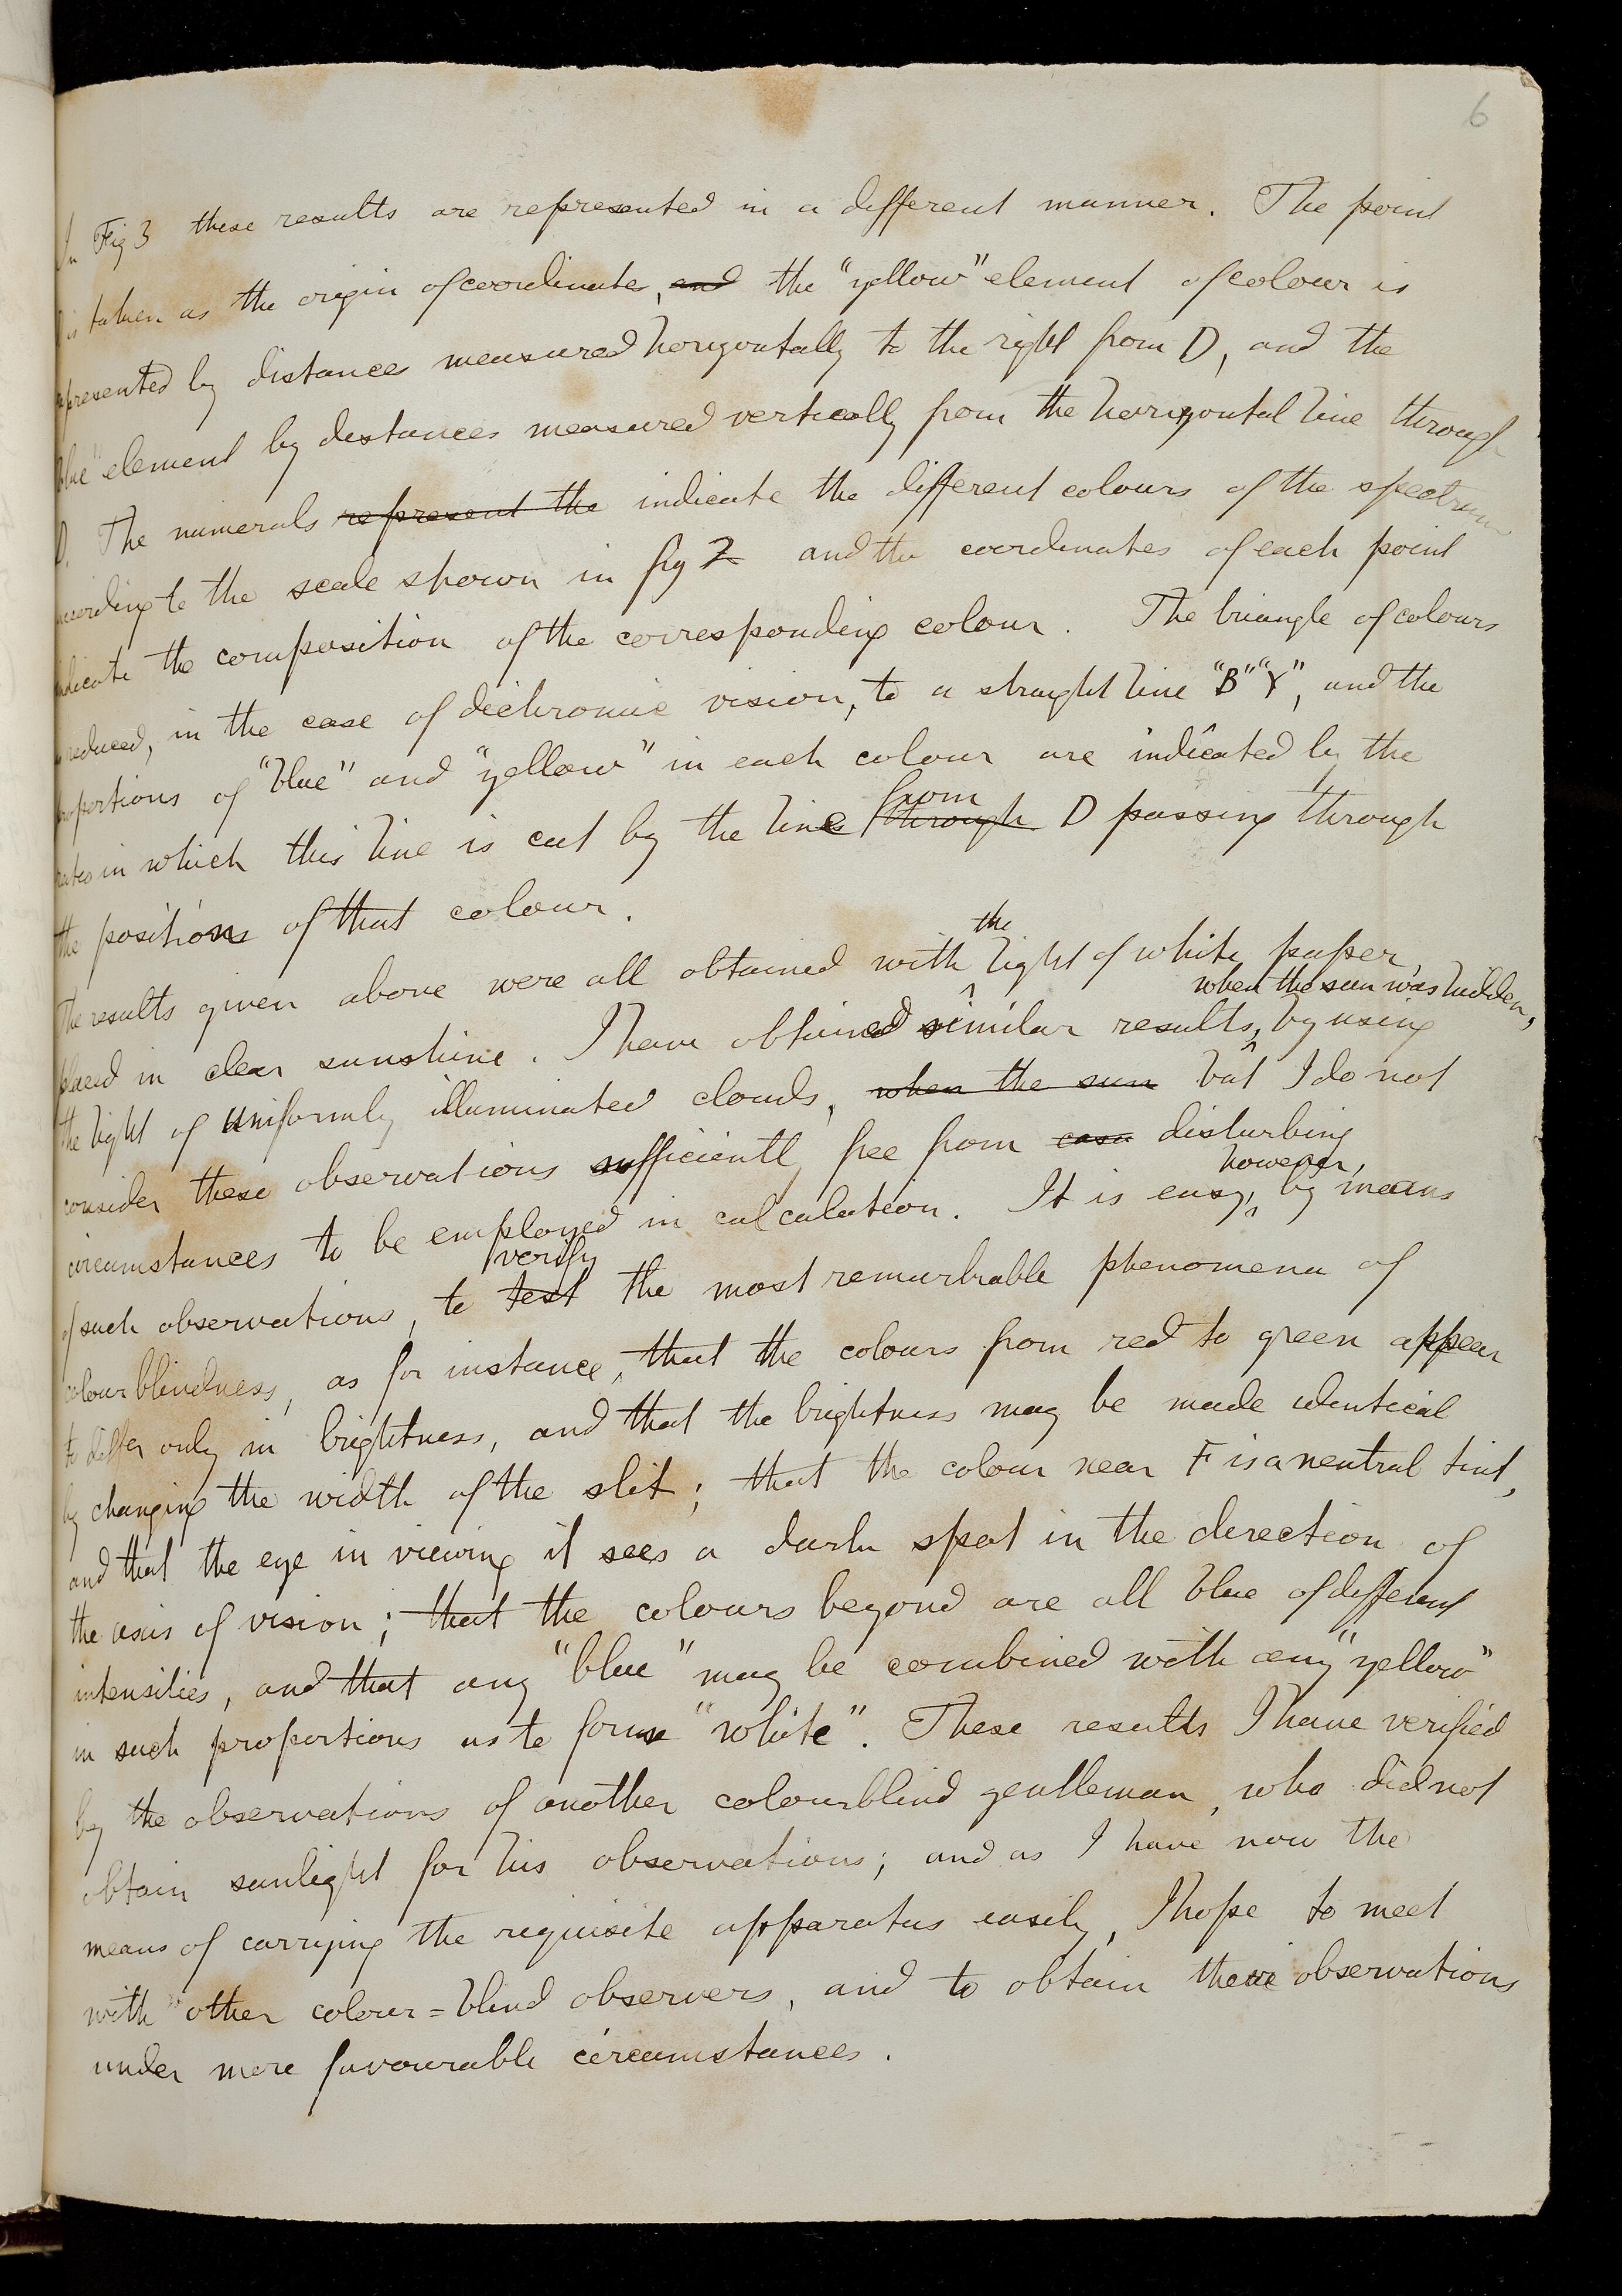 6
In Fig 3 these results are represented in a different manner. The point
D is taken as the origin of coordinates, and the "yellow" element of colour is
represented by distances measured horizontally to the right from D, and the
"blue" element by distances measured vertically from the horizontal line through
D. The numerals represent the indicate the different colours of the spectrum
according to the scale shown in fig 2 and the coordinates of each point
indicate the composition of the corresponding colour. The triangle of colours
is reduced, in the case of dichromic vision, to a straight line "B" "Y", and the
proportions of "blue" and "yellow" in each colour are indicated by the
from
ratio in which this line is cut by the line through D passing through
the positions of that colour.
the
The results given above were all obtained with light of white paper,
when the sun was hidden,
placed in clear sunshine. I have obtained similar results, by using
the light of uniformly illuminated clouds, when the sun but I do not
consider these observations sufficiently free from disturbing
however,
circumstances to be employed in calculation. It is easy, by means
verify
of such observations, to test the most remarkable phenomena of
colour blindness, as for instance, that the colours from red to green appear
to differ only in brightness, and that the brightness may be made identical
by changing the width of the slit; that the colour near F is a neutral tint,
and that the eye in viewing it sees a dark spot in the direction of
the axis of vision; that the colours beyond are all blue of different
intensities, and that any "blue" may be combined with any "yellow"
in such proportions as to form "white". These results I have verified
by the observations of another colourblind gentleman, who did not
obtain sunlight for his observations; and as I have now the
means of carrying the requisite apparatus easily, I hope to meet
with other colour=blind observers, and to obtain their observations
under more favourable circumstances.